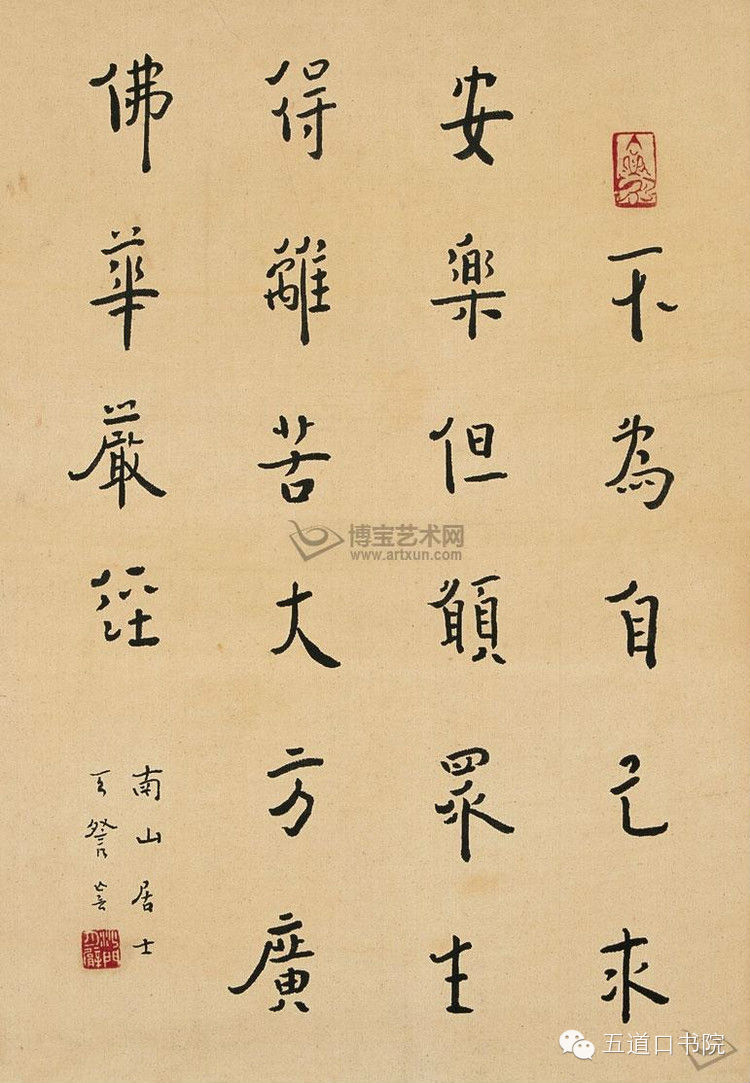 不為自己求
安樂但願眾生
得離苦大方廣
佛華嚴經
南山居士
書
沙門
月臂
博宝艺术网
www.artxun.com
五道口书院